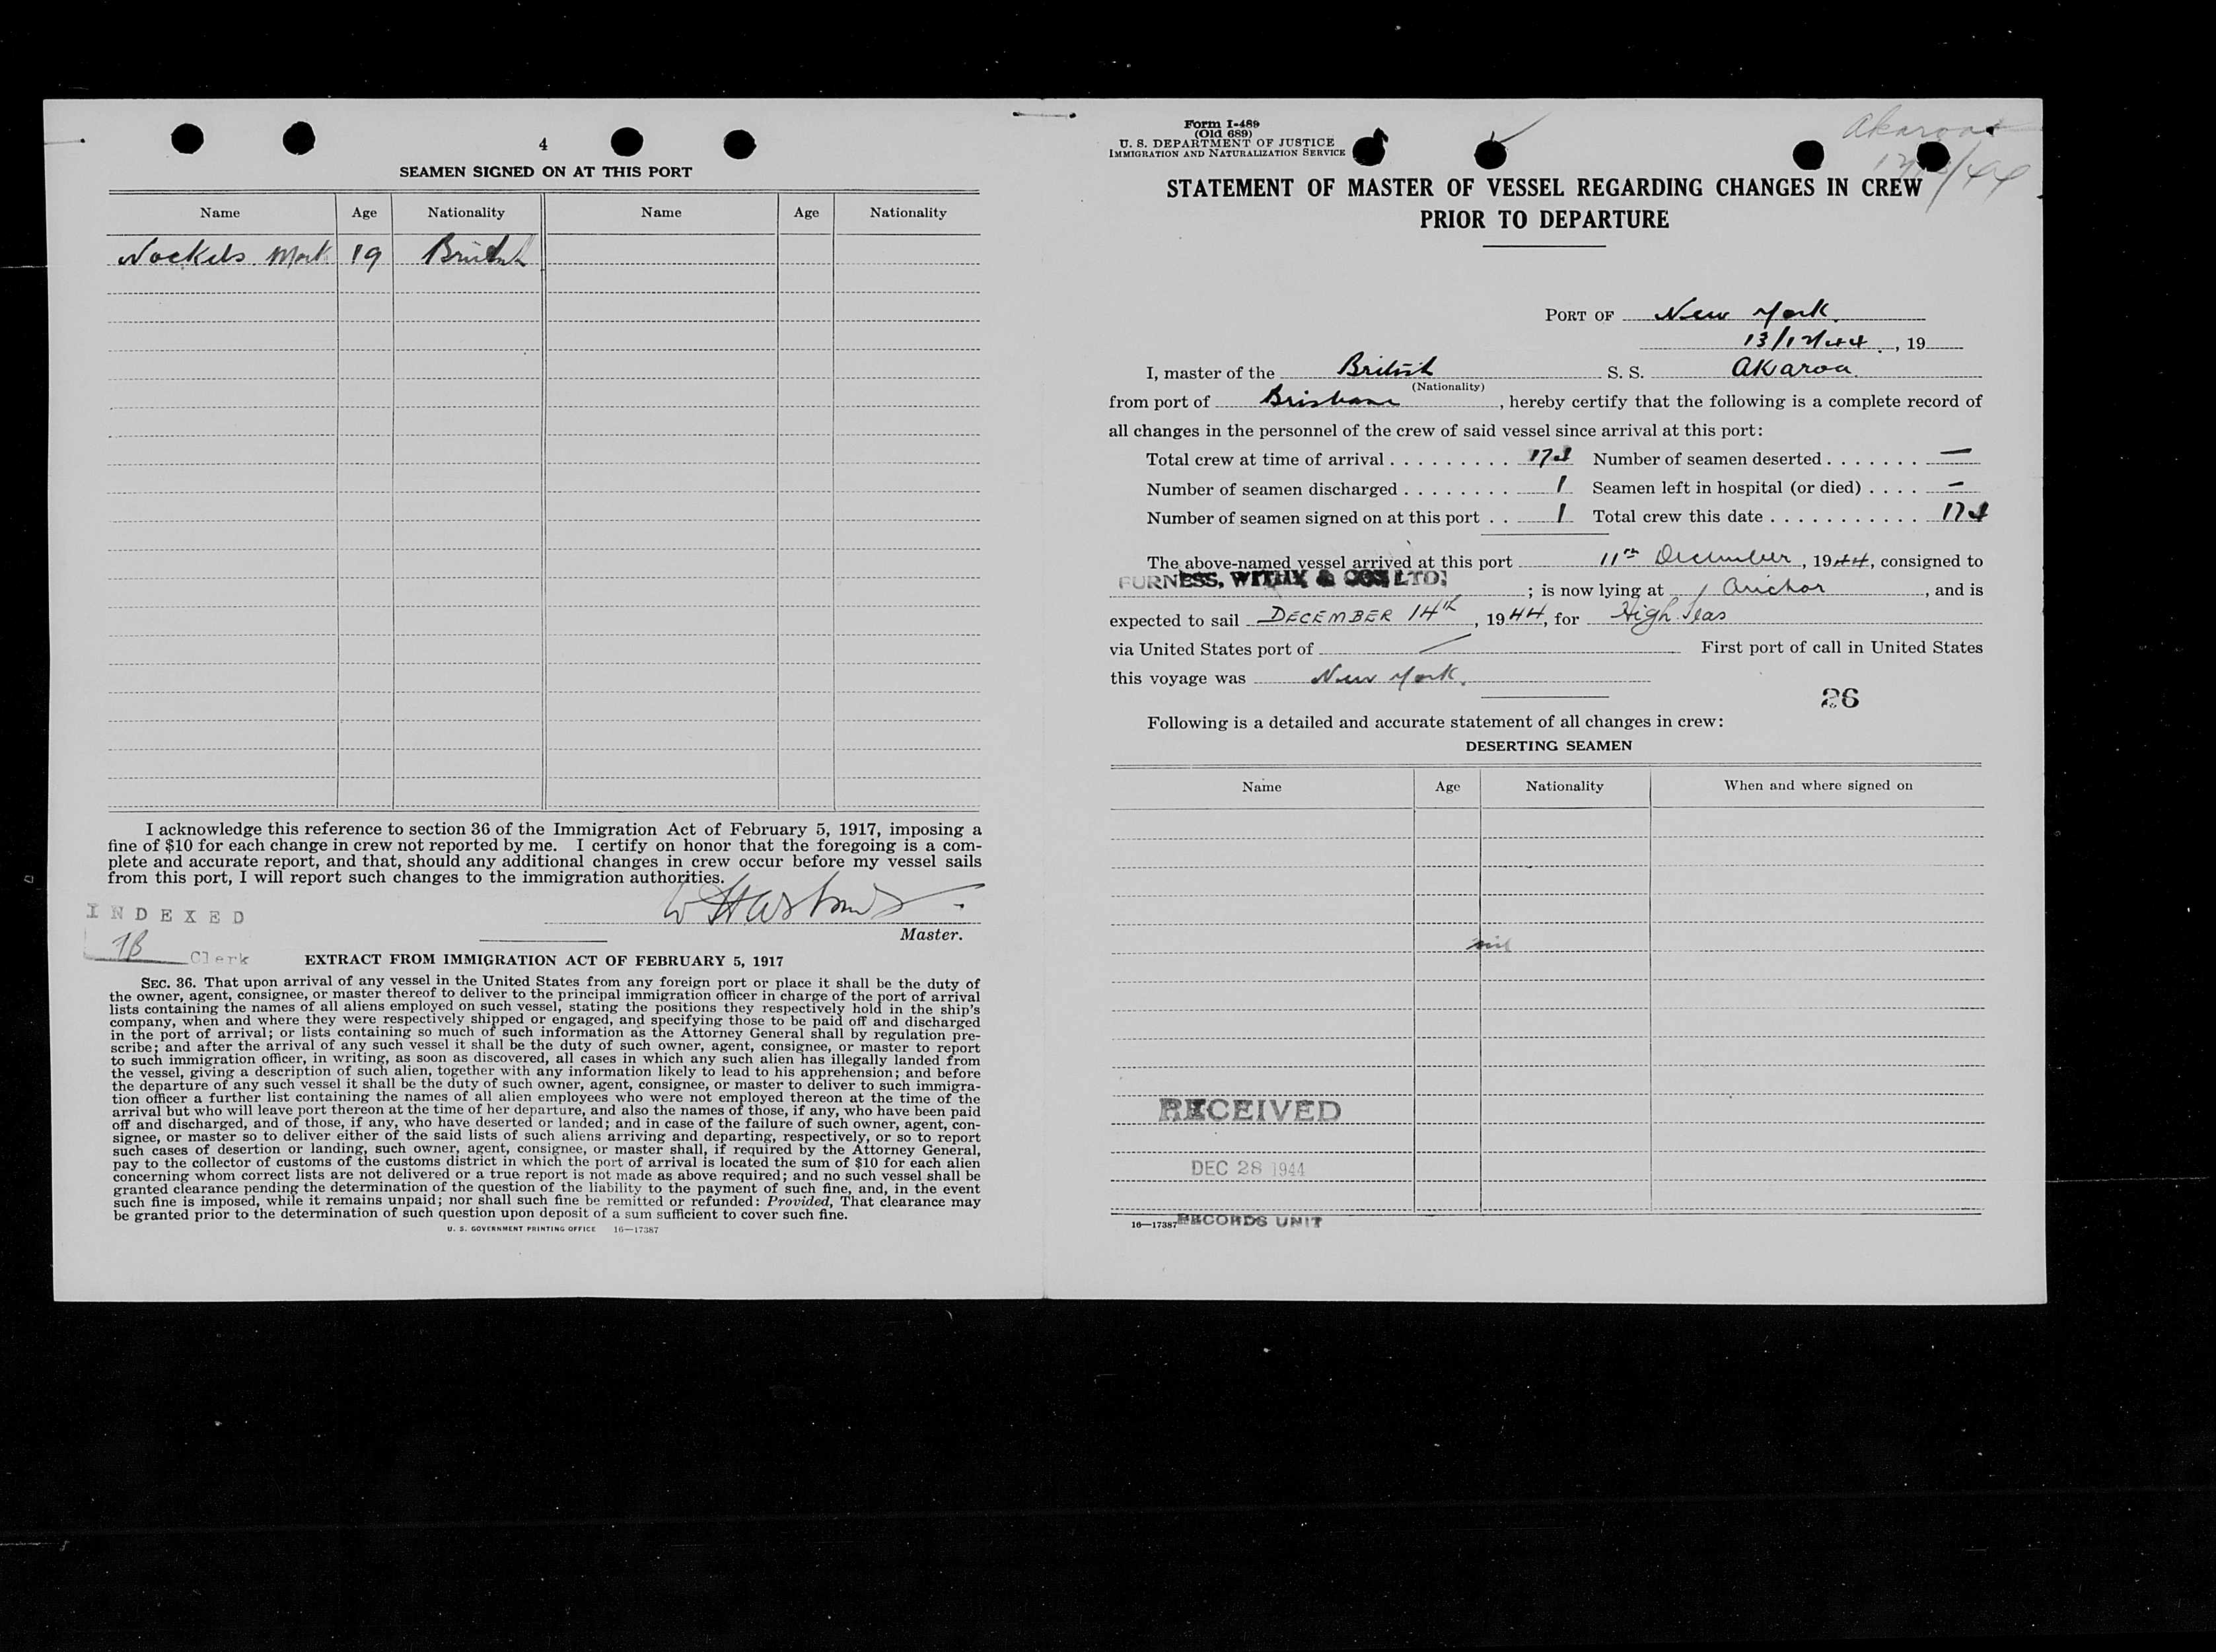 4
SEAMEN SIGNED ON AT THIS PORT
Name Age Nationality Name Age Nationality
Nockels Mark 19 British
I acknowledge this reference to section 36 of the Immigration Act of February 5, 1917, imposing a
fine of $10 for each change in crew not reported by me. I certify on honor that the foregoing is a com-
plete and accurate report, and that, should any additional changes in crew occur before my vessel sails
from this port, I will report such changes to the immigration authorities.
INDEXED
Master.
Clerk
EXTRACT FROM IMMIGRATION ACT OF FEBRUARY 5, 1917
SEC. 36. That upon arrival of any vessel in the United States from any foreign port or place it shall be the duty of
the owner, agent, consignee, or master thereof to deliver to the principal immigration officer in charge of the port of arrival
lists containing the names of all aliens employed on such vessel, stating the positions they respectively hold in the ship's
company, when and where they were respectively shipped or engaged, and specifying those to be paid off and discharged
in the port of arrival; or lists containing so much of such information as the Attorney General shall by regulation pre-
scribe; and after the arrival of any such vessel it shall be the duty of such owner, agent, consignee, or master to report
to such immigration officer, in writing, as soon as discovered, all cases in which any such alien has illegally landed from
the vessel, giving a description of such alien, together with any information likely to lead to his apprehension; and before
the departure of any such vessel it shall be the duty of such owner, agent, consignee, or master to deliver to such immigra-
tion officer a further list containing the names of all alien employees who were not employed thereon at the time of the
arrival but who will leave port thereon at the time of her departure, and also the names of those, if any, who have been paid
off and discharged, and of those, if any, who have deserted or landed; and in case of the failure of such owner, agent, con-
signee, or master so to deliver either of the said lists of such aliens arriving and departing, respectively, or so to report
such cases of desertion or landing, such owner, agent, consignee, or master shall, if required by the Attorney General,
pay to the collector of customs of the customs district in which the port of arrival is located the sum of $10 for each alien
concerning whom correct lists are not delivered or a true report is not made as above required; and no such vessel shall be
granted clearance pending the determination of the question of the liability to the payment of such fine, and, in the event
such fine is imposed, while it remains unpaid; nor shall such fine be remitted or refunded: Provided, That clearance may
be granted prior to the determination of such question upon deposit of a sum sufficient to cover such fine.
U. S. GOVERNMENT PRINTING OFFICE 16—17387
Form I-489
(Old 689)
U. S. DEPARTMENT OF JUSTICE
IMMIGRATION AND NATURALIZATION SERVICE
Akaroa
STATEMENT OF MASTER OF VESSEL REGARDING CHANGES IN CREW
PRIOR TO DEPARTURE
PORT OF New York.
13/12/44, 19
I, master of the British S. S. Akaroa
(Nationality)
from port of Brisbane, hereby certify that the following is a complete record of
all changes in the personnel of the crew of said vessel since arrival at this port:
Total crew at time of arrival Number of seamen deserted —
Number of seamen discharged 1 Seamen left in hospital (or died) —
Number of seamen signed on at this port 1 Total crew this date
The above-named vessel arrived at this port 11th December, 1944, consigned to
FURNESS, WITHY & CO LTD; is now lying at Anchor, and is
expected to sail DECEMBER 14th, 1944, for High Seas
via United States port of / First port of call in United States
this voyage was New York.
26
Following is a detailed and accurate statement of all changes in crew:
DESERTING SEAMEN
Name Age Nationality When and where signed on
nil
RECEIVED
DEC 28 1944
16—17387 RECORDS UNIT